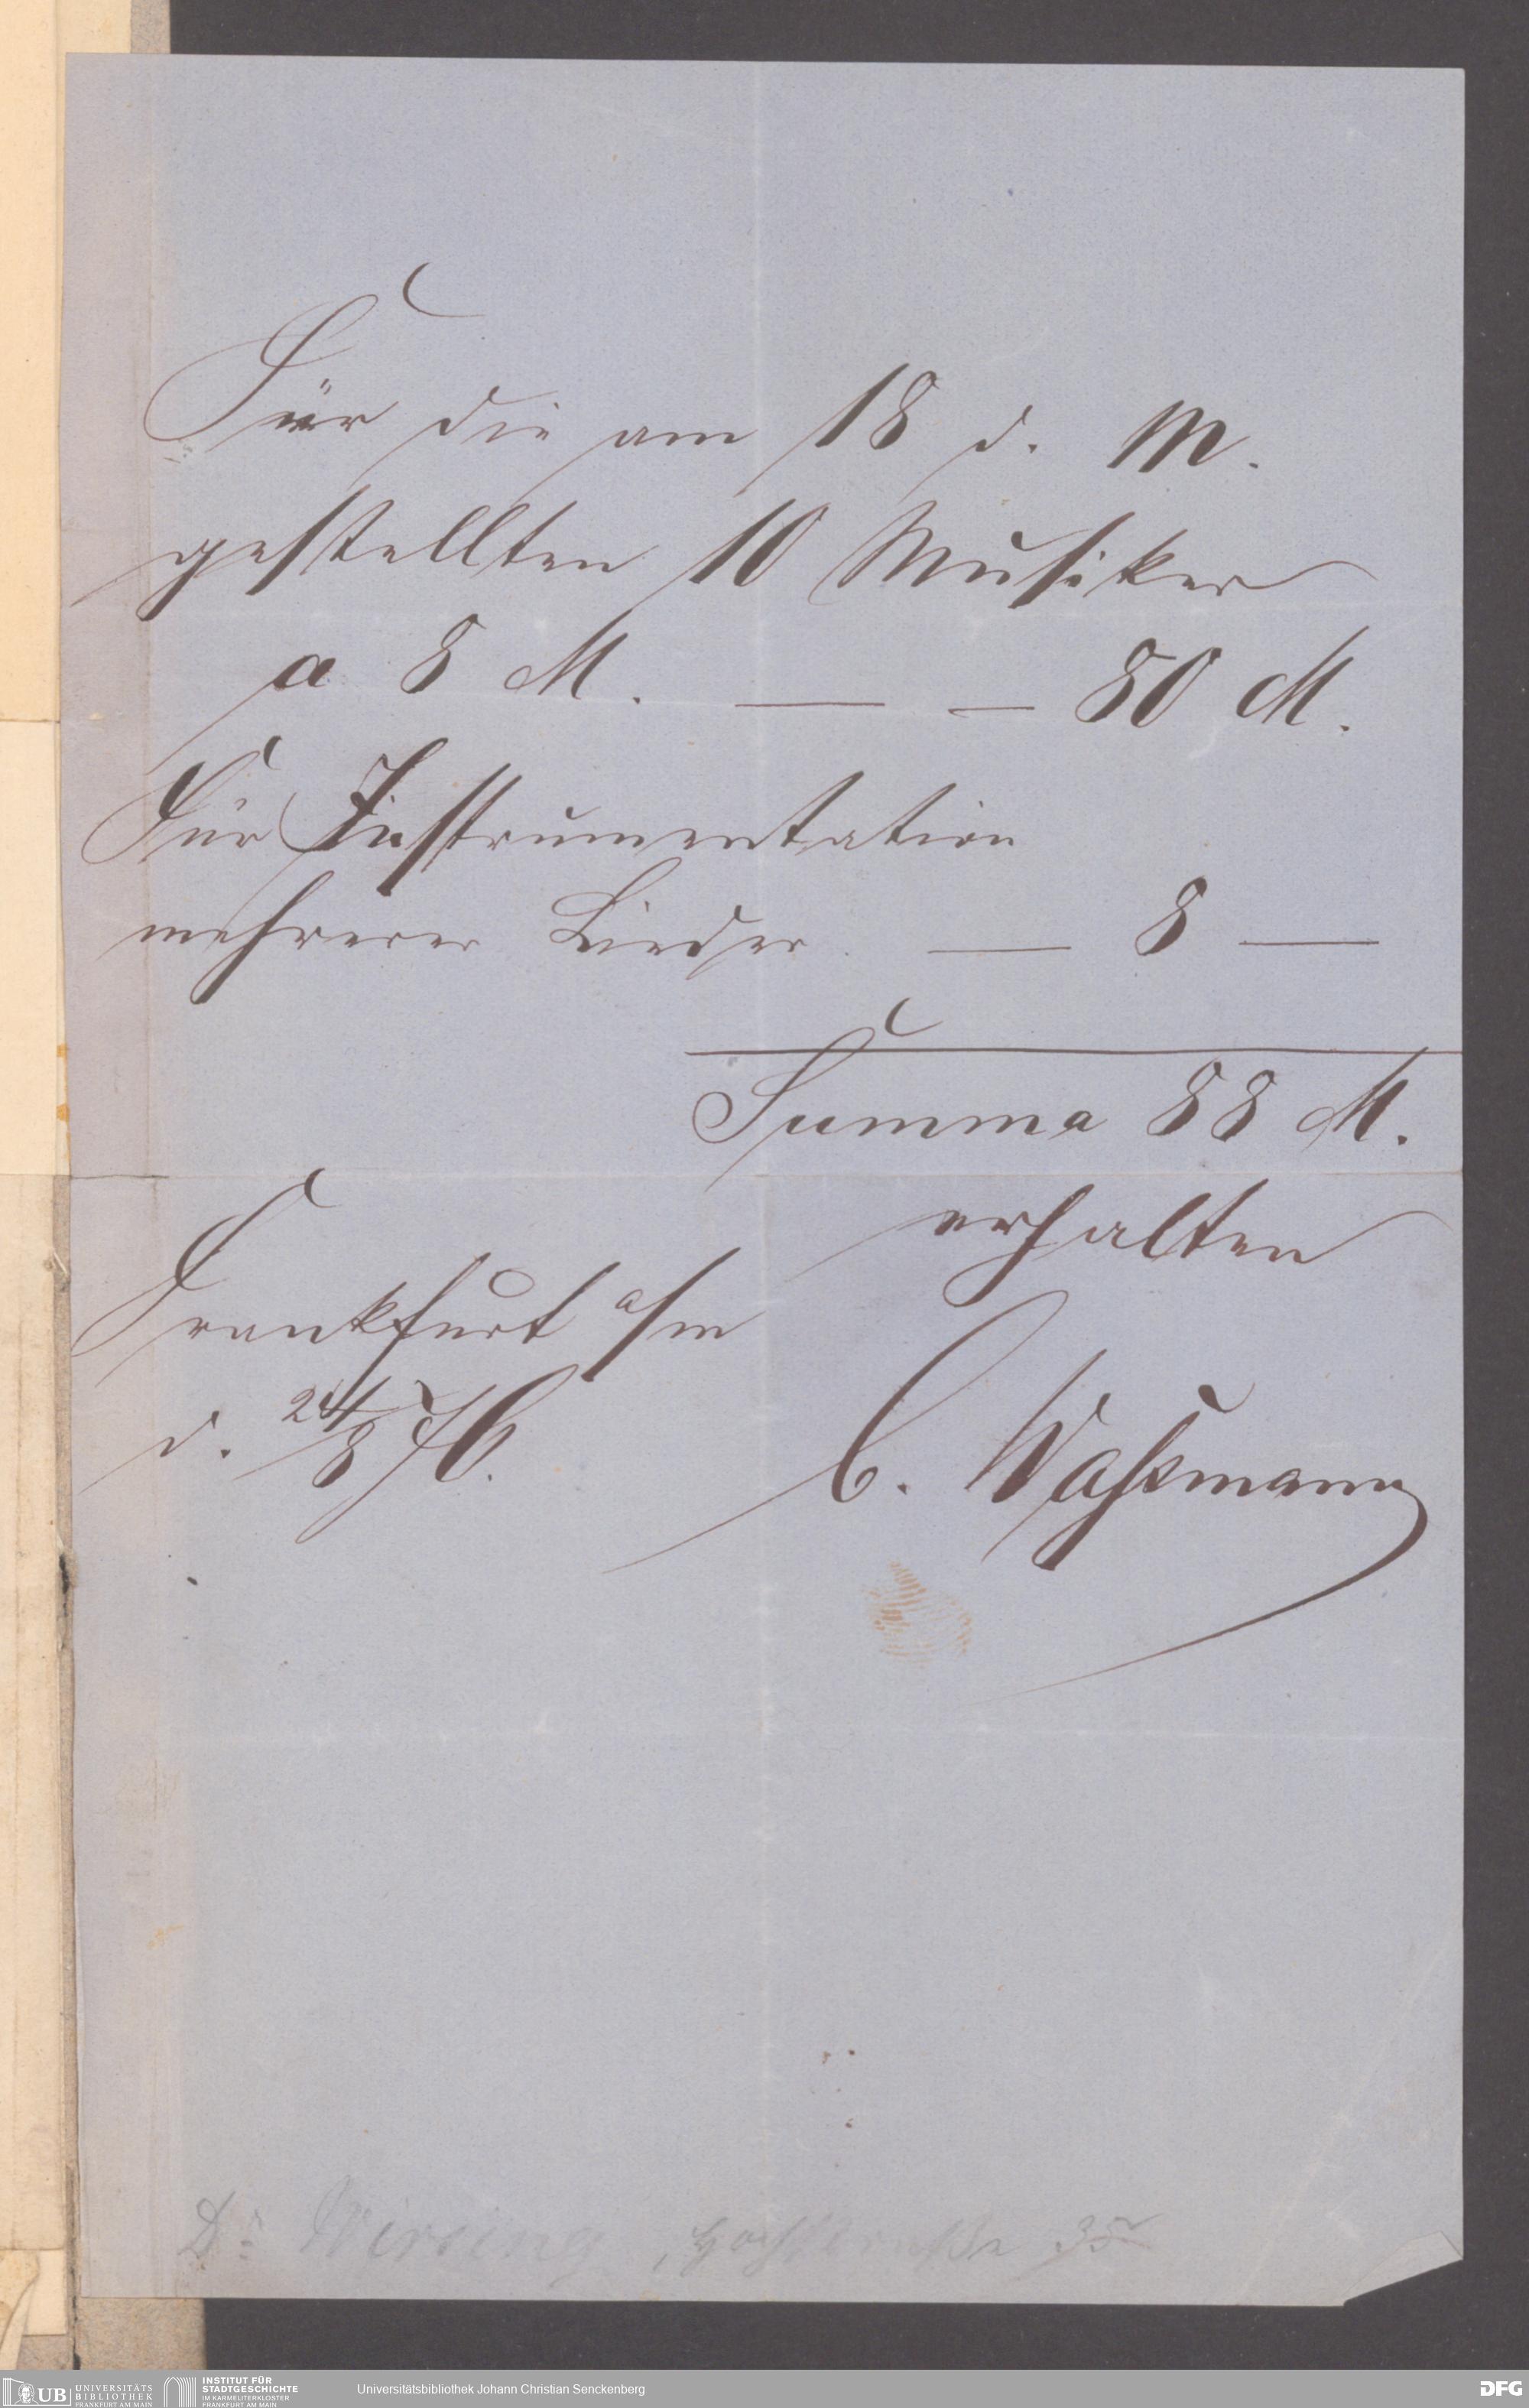 Für die am 18 d. M.
gestellten 10 Musiker
a 8 M. — — 80 M.
Für Instrumentation
mehrerer Lieder. — 8 —
Summa 88 M.
erhalten
Frankfurt a/m
d. 24/8 76.
C. Waßmann
Dr. Wirsing, Hochstraße 35
UB UNIVERSITÄTS BIBLIOTHEK FRANKFURT AM MAIN
INSTITUT FÜR STADTGESCHICHTE IM KARMELITERKLOSTER FRANKFURT AM MAIN
Universitätsbibliothek Johann Christian Senckenberg
DFG